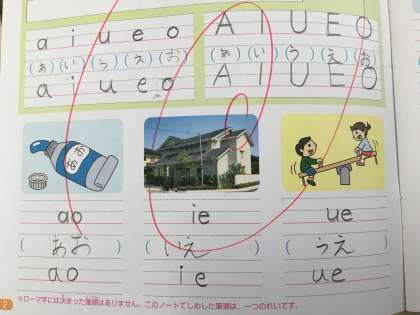 a i u e o A I U E O
(あ)(い)(う)(え)(お) (あ)(い)(う)(え)(お)
a i u e o A I U E O
あお
ao ie ue
(あお) (いえ) (うえ)
ao ie ue
※ローマ字には決まった筆順はありません。このノートでしめした筆順は、一つのれいです。
2